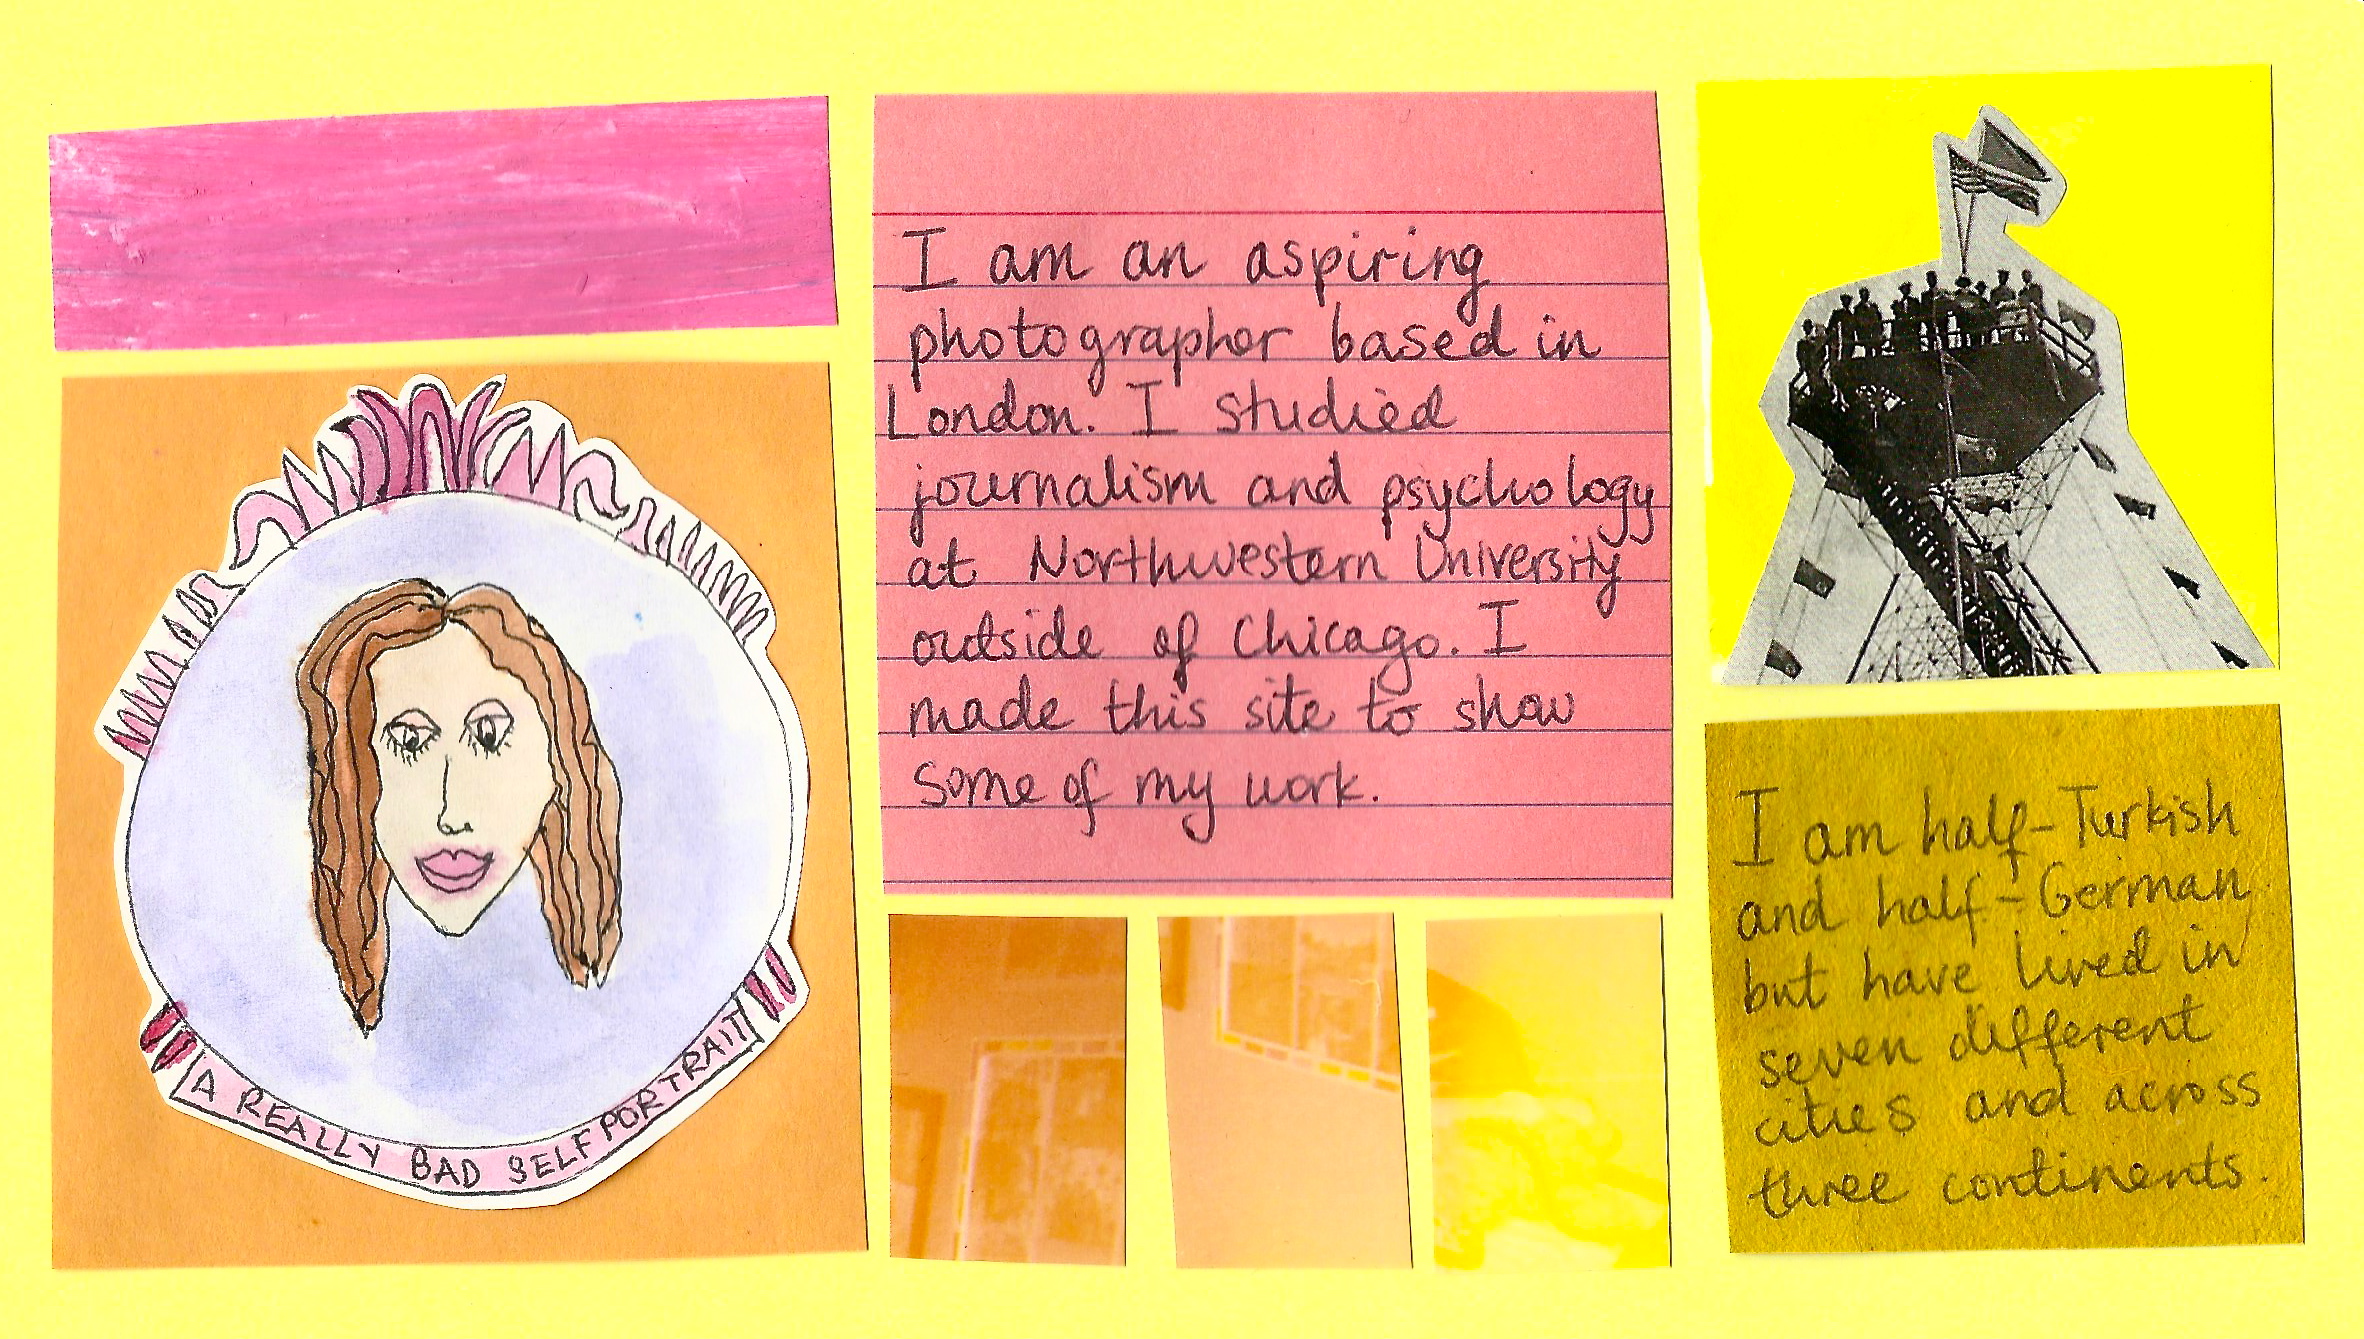 A REALLY BAD SELF PORTRAIT
I am an aspiring
photographer based in
London. I studied
journalism and psychology
at Northwestern University
outside of Chicago. I
made this site to show
some of my work.
I am half-Turkish
and half-German
but have lived in
seven different
cities and across
three continents.